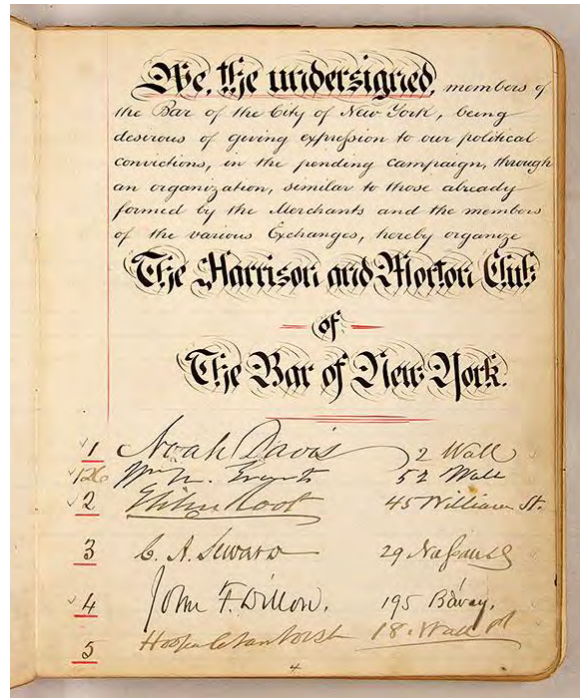 We, the undersigned, members of
the Bar of the City of New York, being
desirous of giving expression to our political
convictions, in the pending campaign, through
an organization, similar to those already
formed by the Merchants and the members
of the various Exchanges, hereby organize
The Harrison and Morton Club
of
The Bar of New York.
1 Noah Davis 2 Wall
126 Wm. M. Evarts 52 Wall
2 Elihu Root 45 William St.
3 C. A. Seward 29 Nassau
4 John F. Dillon. 195 B'way.
5 Hooper C. Van Vorst 18. Wall
4